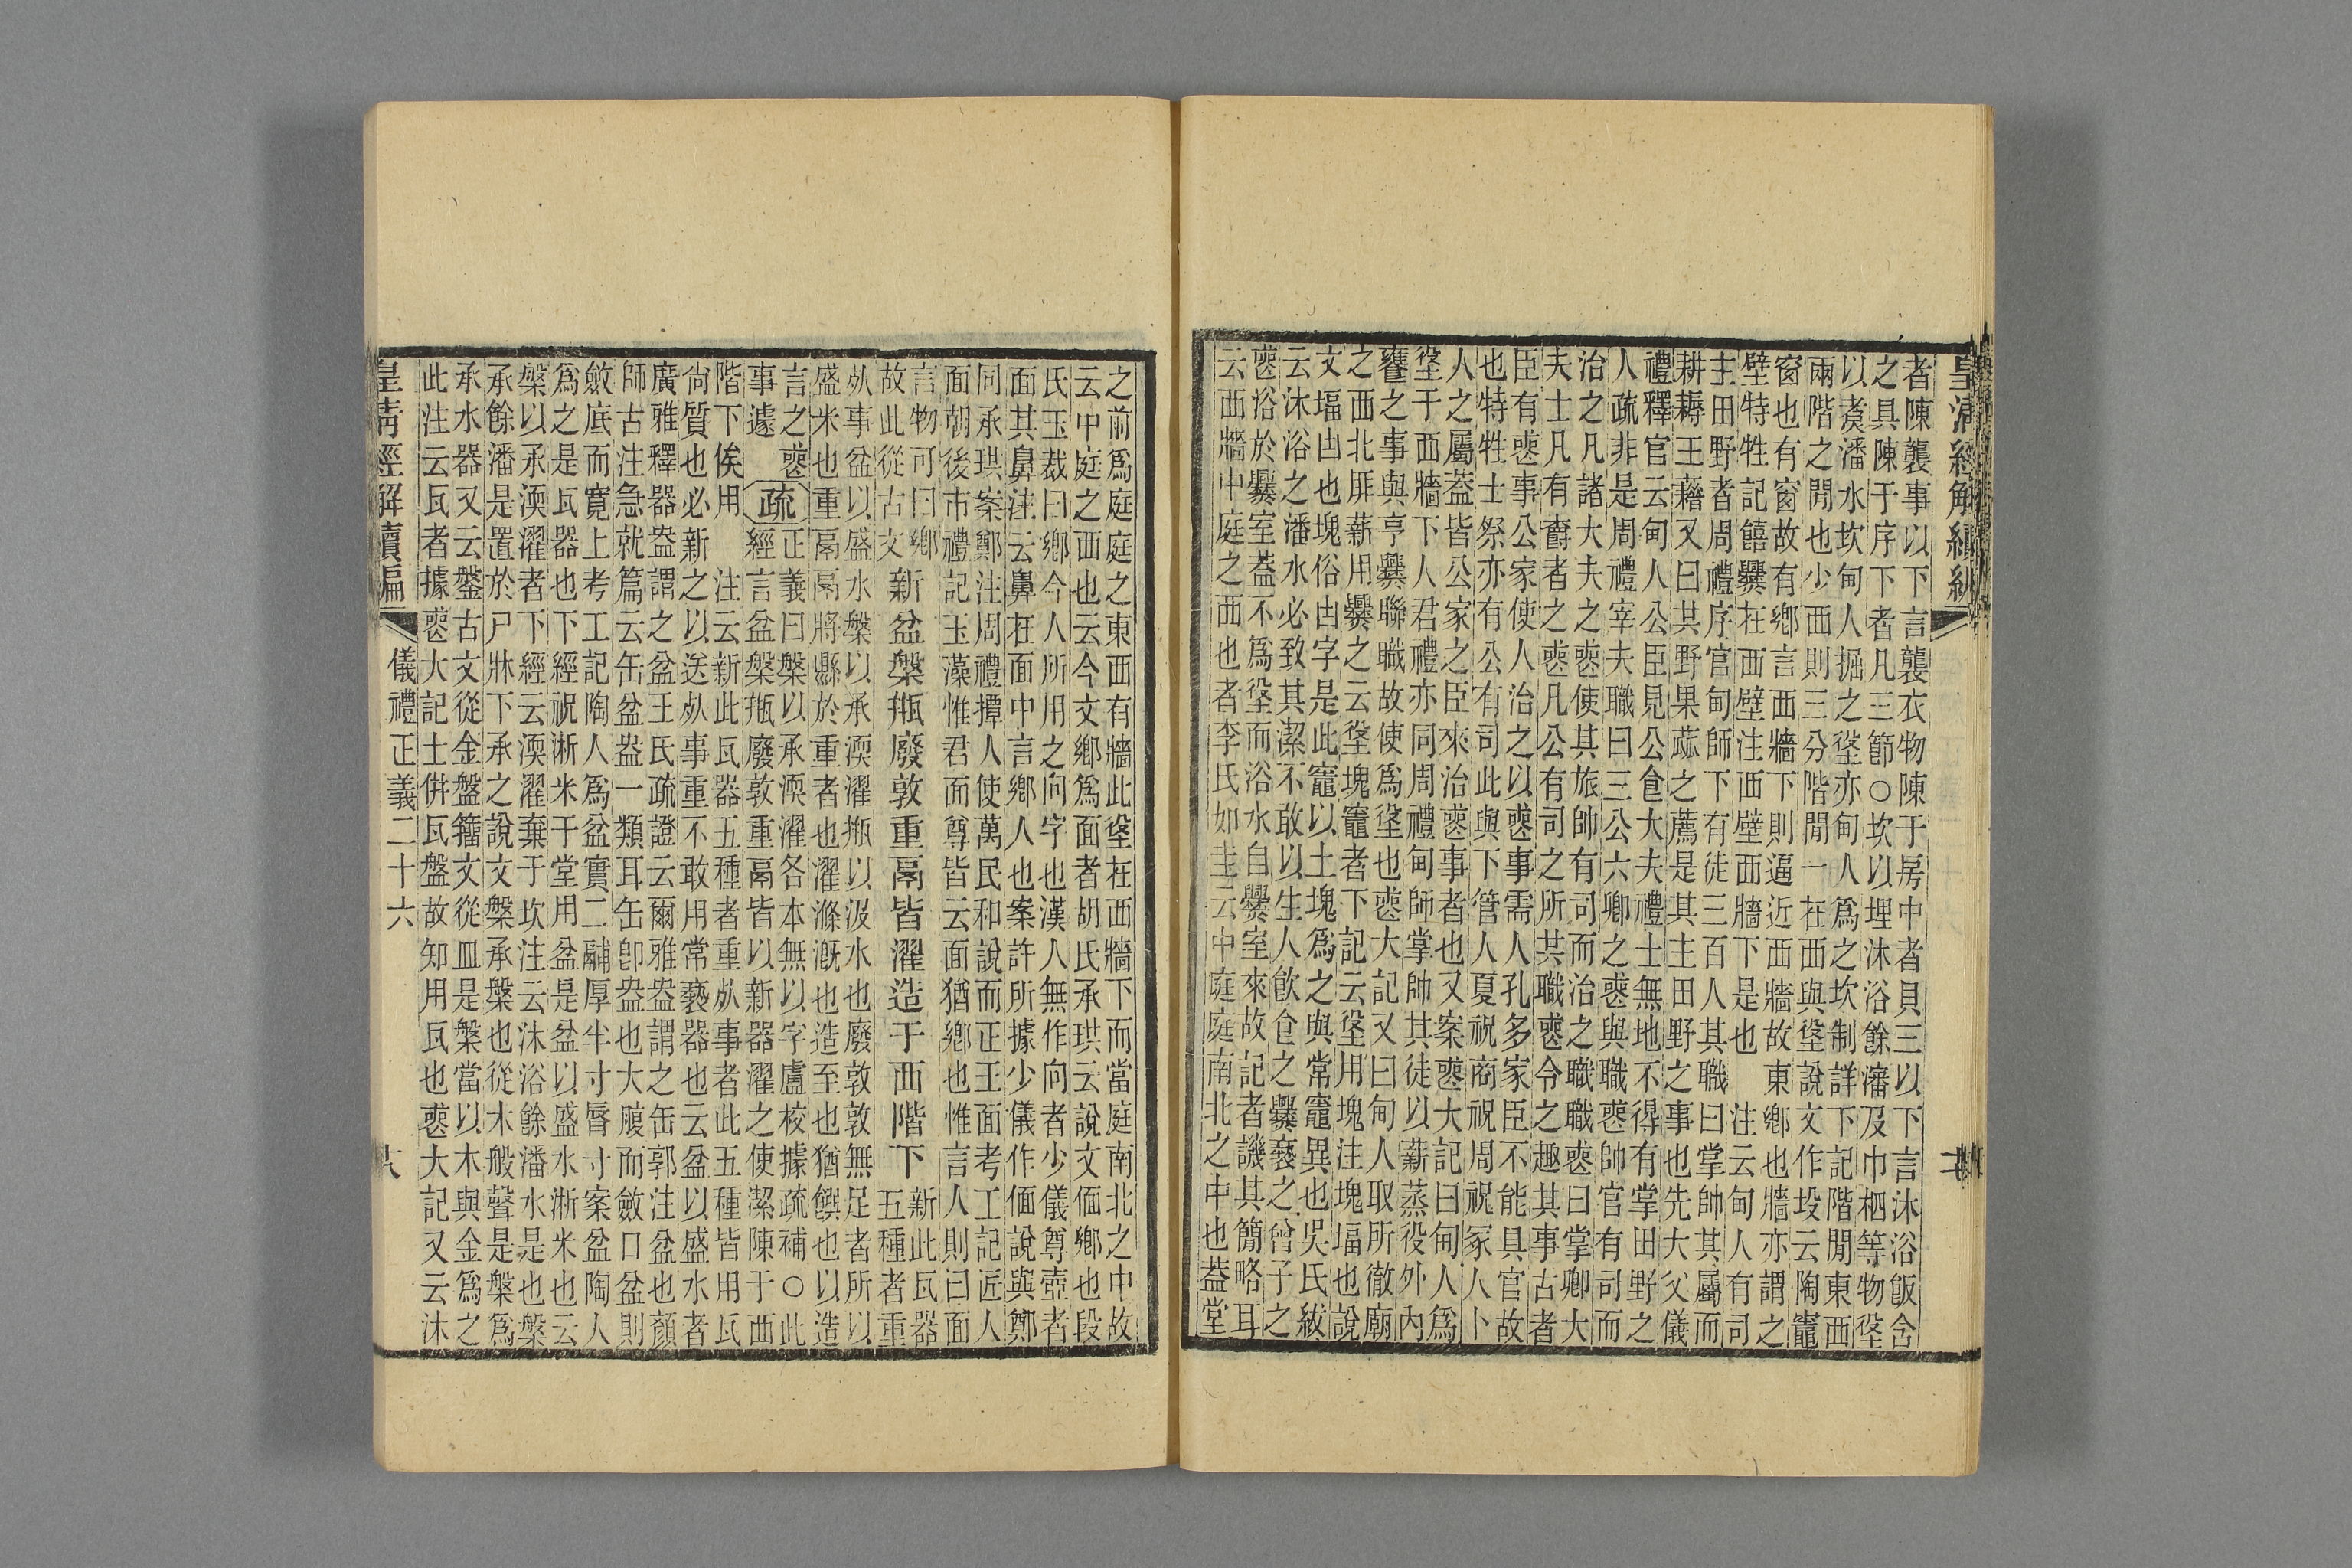 皇清經解續編
者陳襲事以下言襲衣物陳于房中者貝三以下言沐浴飯含
之具陳于序下者凡三節○坎以埋沐浴餘瀋及巾栖等物垼
以煑潘水坎甸人掘之垼亦甸人爲之坎制詳下記階閒東西
兩階之閒也少西則三分階閒一在西與垼說文作坄云陶竈
窗也有窗故有鄕言西牆下則逼近西牆故東鄕也牆亦謂之
壁特牲記饎爨在西壁注西壁西牆下是也 注云甸人有司
主田野者周禮序官甸師下有徒三百人其職曰掌帥其屬而
耕耨王藉又曰其野果蓏之薦是其主田野之事也先大父儀
禮釋官云甸人公臣見公食大夫禮士無地不得有掌田野之
人疏非是周禮宰夫職曰三公六卿之喪與職喪帥官有司而
治之凡諸大夫之喪使其旅帥有司而治之職喪曰掌卿大
夫士凡有爵者之喪凡公有司之所共職喪令之趣其事古者
臣有喪事公家使人治之以喪事需人孔多家臣不能具官故
也特牲士祭亦有公有司此與下管人夏祝商祝周祝冢人卜
人之屬葢皆公家之臣來治喪事者也又案喪大記曰甸人爲
垼于西牆下人君禮亦同周禮甸師掌帥其徒以薪蒸役外內
饔之事與亨爨聯職故使爲垼也喪大記又曰甸人取所徹廟
之西北厞薪用爨之云垼塊竈者下記云垼用塊注塊堛也說
文堛凷也塊俗凷字是此竈以土塊爲之與常竈異也吳氏紱
云沐浴之潘水必致其潔不敢以生人飮食之爨褻之曾子之
喪浴於爨室葢不爲垼而浴水自爨室來故記者譏其簡略耳
云西牆中庭之西也者李氏如圭云中庭庭南北之中也葢堂
之前爲庭庭之東西有牆此垼在西牆下而當庭南北之中故
云中庭之西也云今文鄕爲面者胡氏承珙云說文偭鄕也段
氏玉裁曰鄕今人所用之向字也漢人無作向者少儀尊壺者
面其鼻注云鼻在面中言鄕人也案許所據少儀作偭說與鄭
同承珙案鄭注周禮撢人使萬民和說而正王面考工記匠人
面朝後市禮記玉藻惟君面尊皆云面猶鄕也惟言人則曰面
言物可曰鄕
故此從古文
新盆槃甁廢敦重鬲皆濯造于西階下
新此瓦器
五種者重
死事盆以盛水槃以承渜濯甁以汲水也廢敦敦無足者所以
盛米也重鬲鬲將縣於重者也濯滌漑也造至也猶饌也以造
言之喪
事遽
疏
正義曰槃以承渜濯各本無以字盧校據疏補○此
經言盆槃甁廢敦重鬲皆以新器濯之使潔陳于西
階下俟用 注云新此瓦器五種者重死事者此五種皆用瓦
尙質也必新之以送死事重不敢用常褻器也云盆以盛水者
廣雅釋器盎謂之盆王氏疏證云爾雅盎謂之缶郭注盆也顏
師古注急就篇云缶盆盎一類耳缶卽盎也大腹而斂口盆則
斂底而寬上考工記陶人爲盆實二鬴厚半寸脣寸案盆陶人
爲之是瓦器也下經祝淅米于堂用盆是盆以盛水淅米也云
槃以承渜濯者下經云渜濯棄于坎注云沐浴餘潘水是也槃
承餘潘是置於尸牀下承之說文槃承槃也從木般聲是槃爲
承水器又云鎜古文從金盤籒文從皿是槃當以木與金爲之
此注云瓦者據喪大記士併瓦盤故知用瓦也喪大記又云沐
皇清經解續編
儀禮正義二十六